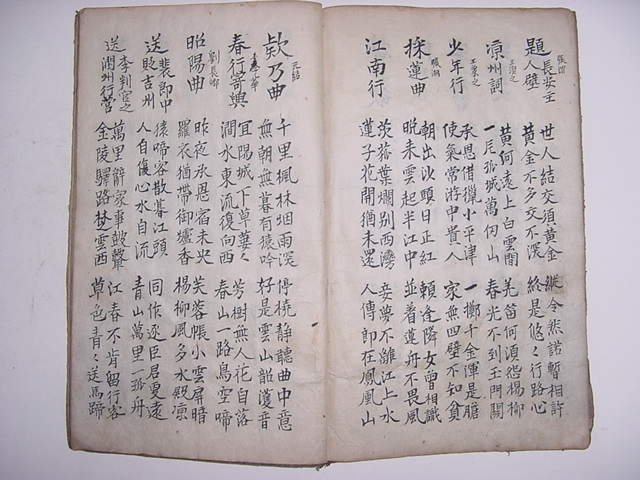 題長安主人壁
張謂
世人結交須黃金 縱令然諾暫相許
黃金不多交不深 終是悠々行路心
凉州詞
黃河遠上白雲間 羌笛何須怨楊柳
一片孤城萬仞山 春光不到玉門關
少年行
承恩借獵小平津 一擲千金渾是膽
使氣常游中貴人 家無四壁不知貧
採蓮曲
張潮
朝出沙頭日正紅 賴逢隣女曾相識
晩来雲起半江中 並着蓮舟不畏風
江南行
茨菰葉爛別西灣 妾夢不離江上水
蓮子花開猶未還 人傳郎在鳳凰山
欸乃曲
元結
千里楓林烟雨深 停橈静聽曲中意
無朝無暮有猿吟 好是雲山韶濩音
春行寄興
李華
宜陽城下草萋々 芳樹無人花自落
澗水東流復向西 春山一路鳥空啼
昭陽曲
劉長卿
昨夜承恩宿未央 芙蓉帳小雲屏暗
羅衣猶帶御爐香 楊柳風多水殿凉
送裴郎中貶吉州
猿啼客散暮江頭 同作逐臣君更遠
人自傷心水自流 青山萬里一孤舟
送李判官之潤州行營
萬里辭家事鼓鼙 江春不肯留行客
金陵驛路楚雲西 草色青々送馬蹄